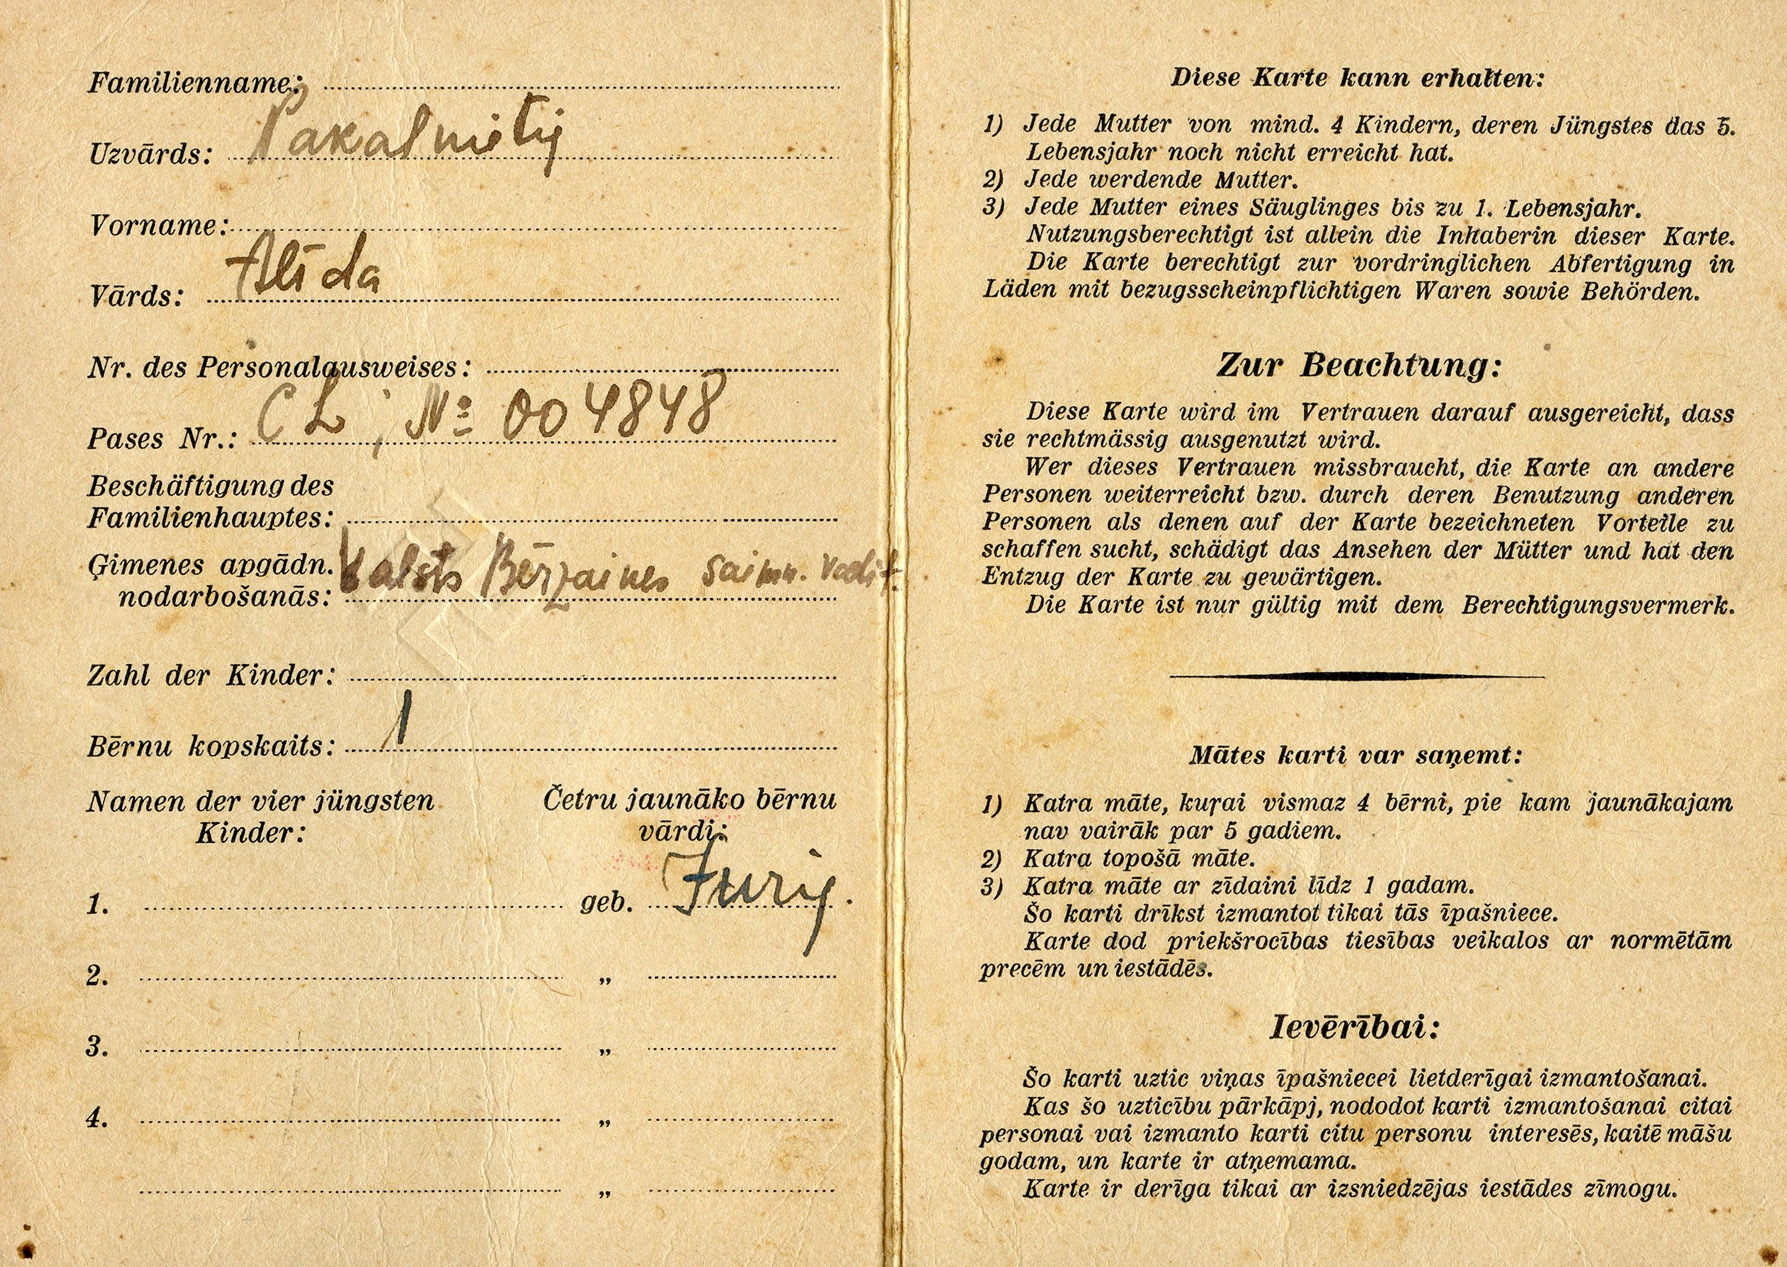 Familienname:
Uzvārds: Pakalnietis
Vorname:
Vārds: Alīda
Nr. des Personalausweises:
Pases Nr.: CL, № 004848
Beschäftigung des
Familienhauptes:
Ģimenes apgādn.
nodarbošanās: Valsts Bērzaines saimn. vadīt.
Zahl der Kinder:
Bērnu kopskaits: 1
Namen der vier jüngsten
Kinder:
Četru jaunāko bērnu
vārdi:
1. geb. Juris.
2. „
3. „
4. „
„
Diese Karte kann erhalten:
1) Jede Mutter von mind. 4 Kindern, deren Jüngstes das 5.
Lebensjahr noch nicht erreicht hat.
2) Jede werdende Mutter.
3) Jede Mutter eines Säuglinges bis zu 1. Lebensjahr.
Nutzungsberechtigt ist allein die Inhaberin dieser Karte.
Die Karte berechtigt zur vordringlichen Abfertigung in
Läden mit bezugsscheinpflichtigen Waren sowie Behörden.
Zur Beachtung:
Diese Karte wird im Vertrauen darauf ausgereicht, dass
sie rechtmässig ausgenutzt wird.
Wer dieses Vertrauen missbraucht, die Karte an andere
Personen weiterreicht bzw. durch deren Benutzung anderen
Personen als denen auf der Karte bezeichneten Vorteile zu
schaffen sucht, schädigt das Ansehen der Mütter und hat den
Entzug der Karte zu gewärtigen.
Die Karte ist nur gültig mit dem Berechtigungsvermerk.
Mātes karti var saņemt:
1) Katra māte, kuŗai vismaz 4 bērni, pie kam jaunākajam
nav vairāk par 5 gadiem.
2) Katra topošā māte.
3) Katra māte ar zīdaini līdz 1 gadam.
Šo karti drīkst izmantot tikai tās īpašniece.
Karte dod priekšrocības tiesības veikalos ar normētām
precēm un iestādēs.
Ievērībai:
Šo karti uztic viņas īpašniecei lietderīgai izmantošanai.
Kas šo uzticību pārkāpj, nododot karti izmantošanai citai
personai vai izmanto karti citu personu interesēs, kaitē māšu
godam, un karte ir atņemama.
Karte ir derīga tikai ar izsniedzējas iestādes zīmogu.